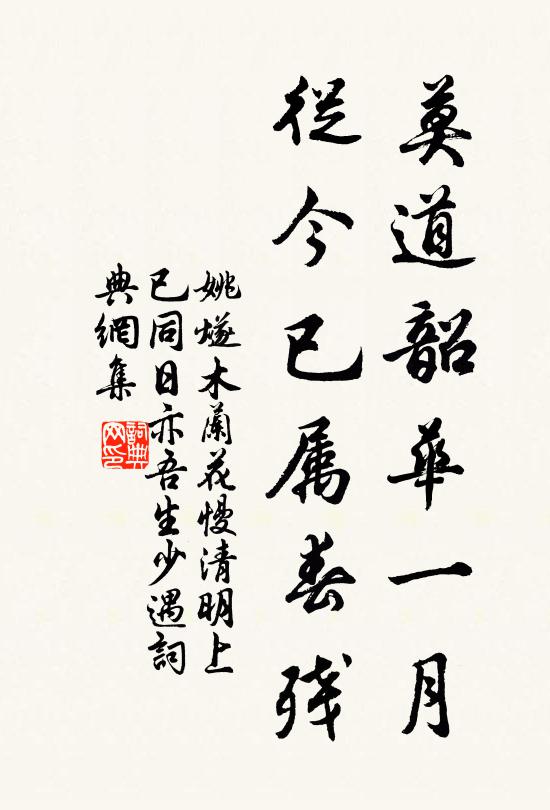 莫道韶華一月
從今已属春残
姚燧木蘭花慢清明上
已同日亦吾生少遇詞
典網集
詞典网印